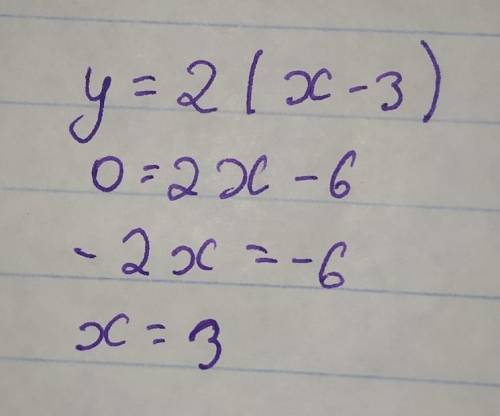 y = 2 ( x - 3 )
0 = 2x - 6
- 2x = -6
x = 3